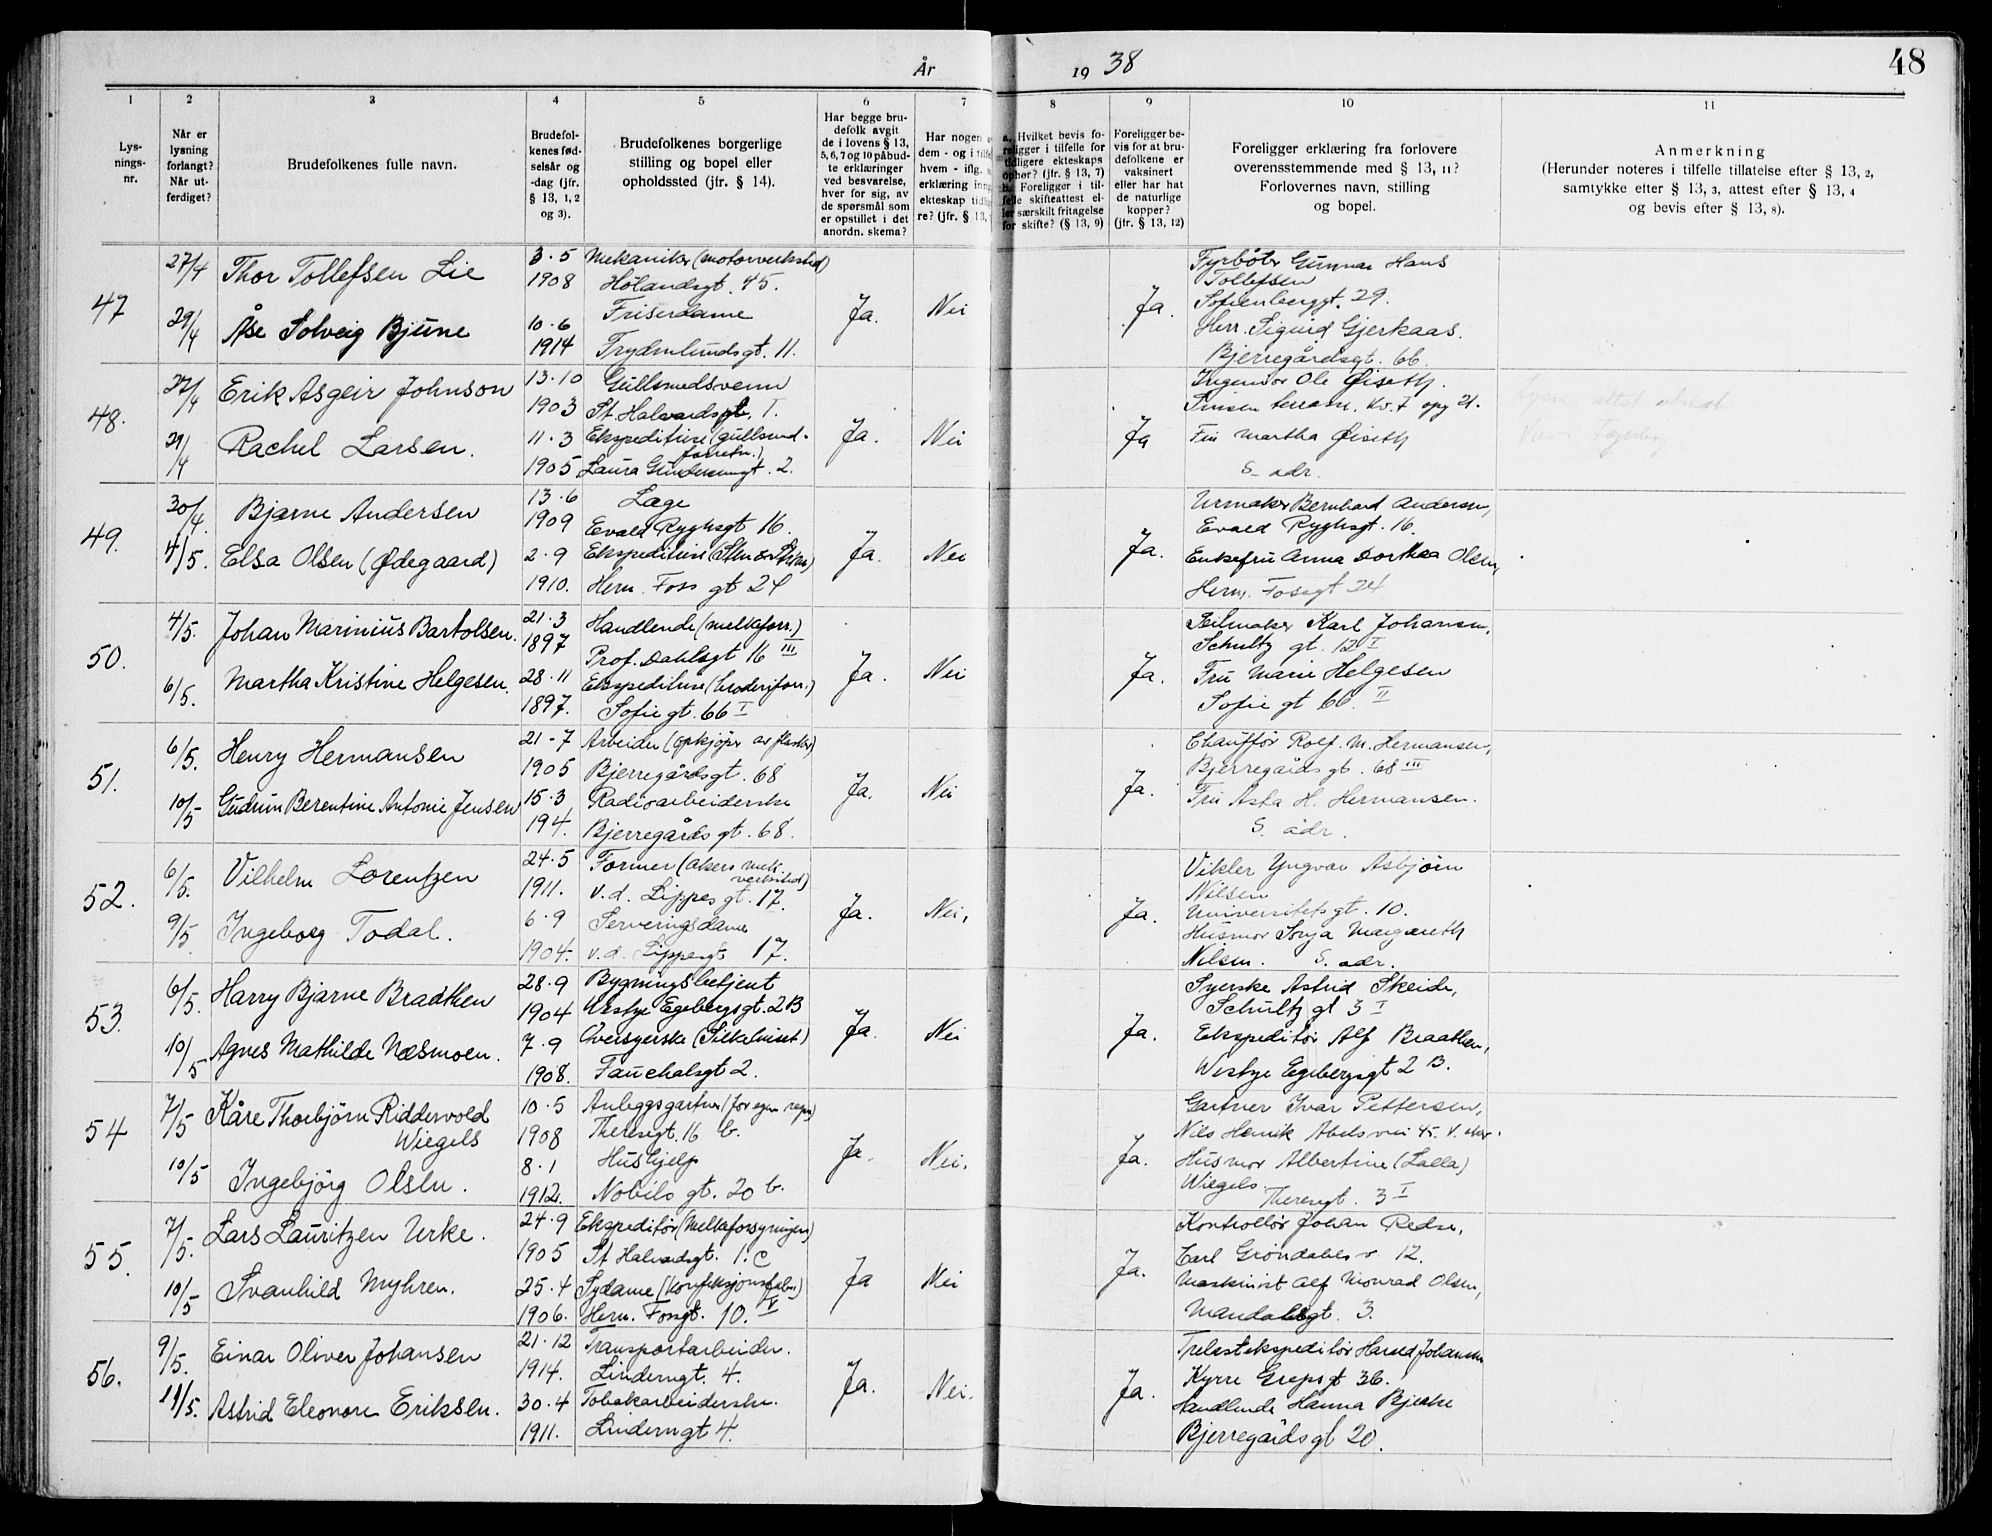 År 1938
48
1 2 3 4 5 6 7 8 9 10 11
Lys-
nings-
nr.
Når er
lysning
forlangt?
Når ut-
ferdiget?
Brudefolkenes fulle navn.
Brudefol-
kenes fød-
selsår og
-dag (jfr.
§ 13, 1, 2
og 3).
Brudefolkenes borgerlige
stilling og bopel eller
opholdssted (jfr. § 14).
Har begge bru-
defolk avgit
de i lovens § 13,
5, 6, 7 og 10 påbud-
te erklæringer
ved besvarelse,
hver for sig, av
de spørsmål som
er opstillet i det
anordn. skema?
Har nogen
dem - og i tilfe
hvem - iflg.
erklæring inng
ekteskap tidli
re? (jfr. § 13,
a. Hvilket bevis fo-
religger i tilfelle for
tidligere ekteskaps
ophør? (jfr. § 13, 7)
b. Foreligger i til-
felle skifteattest el-
ler særskilt fritagelse
for skifte? (§ 13, 9)
Foreligger be-
vis for at bru-
defolkene er
vaksinert
eller har hat
de naturlige
kopper?
(jfr. § 13, 12)
Foreligger erklæring fra forlovere
overensstemmende med § 13, 11?
Forlovernes navn, stilling
og bopel.
Anmerkning
(Herunder noteres i tilfelle tillatelse efter § 13, 2,
samtykke efter § 13, 3, attest efter § 13, 4
og bevis efter § 13, 8).
47
27/4 Thor Tollefsen Lie 3.5 1908 Mekaniker (motorverksted)
Hølandsgt. 45.
29/4 Åse Solveig Bjune 10.6 1914 Friserdame
Frydenlundsgt. 11.
Ja. Nei Ja.
Fyrbøter Gunnar Hans
Tollefsen
Sofienberggt. 29.
Herr Sigurd Gjerkaas.
Bjerregårdsgt. 66.
48.
27/4 Erik Asgeir Johnson 13.10 1903 Gullsmedsvenn
St. Halvardsgt. 1.
29/4 Rachel Larsen. 11.3 1905 Ekspeditrise (gullsmed-
forretn.)
Laura Gundersensgt. 2.
Ja. Nei Ja
Ingeniør Ole Øiseth.
Sinsen terrasse. Kv. F opg 21.
Fru Martha Øiseth
S. adr.
49.
30/4. Bjarne Andersen 13.6 1909 Læge
Evald Ryghsgt 16.
4/5. Elsa Olsen (Ødegaard) 2.9 1910. Ekspeditrise (Steen & Strøm)
Herm. Foss gt 24
Ja. Nei Ja.
Urmaker Bernhard Andersen,
Evald Ryghsgt. 16.
Enkefru Anna Dorthea Olsen,
Herm. Fossgt 24
50.
4/5. Johan Marinius Bartolsen. 21.3 1897 Handlende (melkeforr.)
Prof. Dahlsgt 16 III
6/5. Martha Kristine Helgesen. 28.11 1897. Ekspeditrise (broderiforr.)
Sofie gt. 66 I
Ja. Nei Ja.
Seilmaker Karl Johansen,
Schultz gt. 12 I
Fru Marie Helgesen
Sofie gt 66. II
51.
6/5. Henry Hermansen 21-7 1905 Arbeider (opkjøper av flasker)
Bjerregårdsgt. 68
10/5 Gudrun Berentine Antonie Jensen 15.3 194. Radioarbeiderske
Bjerregårds gt. 68.
Ja. Nei Ja.
Chauffør Rolf. M. Hermansen,
Bjerregårds gt. 68 III
Fru Asta H. Hermansen.
S. adr.
52.
6/5. Vilhelm Lorentzen 24.5 1911. Former (Akers mek.
verksted)
v.d. Lippes gt. 17.
9/5 Ingeborg Todal. 6.9 1904. Serveringsdame
v.d. Lippesgt 17.
Ja. Nei. Ja.
Vikler Yngvar Asbjørn
Nilsen
Universitetsgt. 10.
Husmor Sonja Margareth
Nilsen. S. adr.
53.
6/5. Harry Bjarne Braathen 28.9 1904 Bygningsbetjent
Westye Egebergsgt. 2B
10/5 Agnes Mathilde Næsmoen. 7.9 1908. Oversyerske (Silkehuset)
Fauchalsgt 2.
Ja. Nei Ja.
Syerske Astrid Skeide,
Schultz gt 3 I
Ekspeditør Alf Braathen,
Westye Egebergsgt 2 B.
54
7/5 Kåre Thorbjørn Riddervold
Wiegels 10.5 1908 Anleggsgartner (for egen regn)
Theresgt. 16 b.
10/5 Ingebjørg Olsen. 8.1 1912. Hushjelp
Nobels gt. 20 b.
Ja. Nei. Ja.
Gartner Ivar Pettersen,
Nils Henrik Abels vei 45. V. Aker.
Husmor Albertine (Lalla)
Wiegels.
Theresgt. 3 I
55.
7/5. Lars Lauritzen Urke. 24.9 1905 Ekspeditør (Melkeforsyningen)
St Halvardsgt. 1. C
10/5 Svanhild Myhren. 25.4 1906. Sydame (konfeksjonsfabr.)
Herm. Fossgt. 10. V
Ja Nei Ja.
Kontrollør Johan Redse,
Carl Grøndahls v 12.
Maskinist Alf Monrad Olsen,
Mandalsgt. 3.
56.
9/5. Einar Oliver Johansen 21.12 1914. Transportarbeider.
Linderngt. 4.
11/5. Astrid Eleonore Eriksen. 30.4 1911. Tobakarbeiderske.
Linderngt 4.
Ja. Nei. Ja.
Trelastekspeditør Harald Johansen
Kyrre Grepsgt 36.
Handlende Hanna Bjerke
Bjerregårds gt 20.